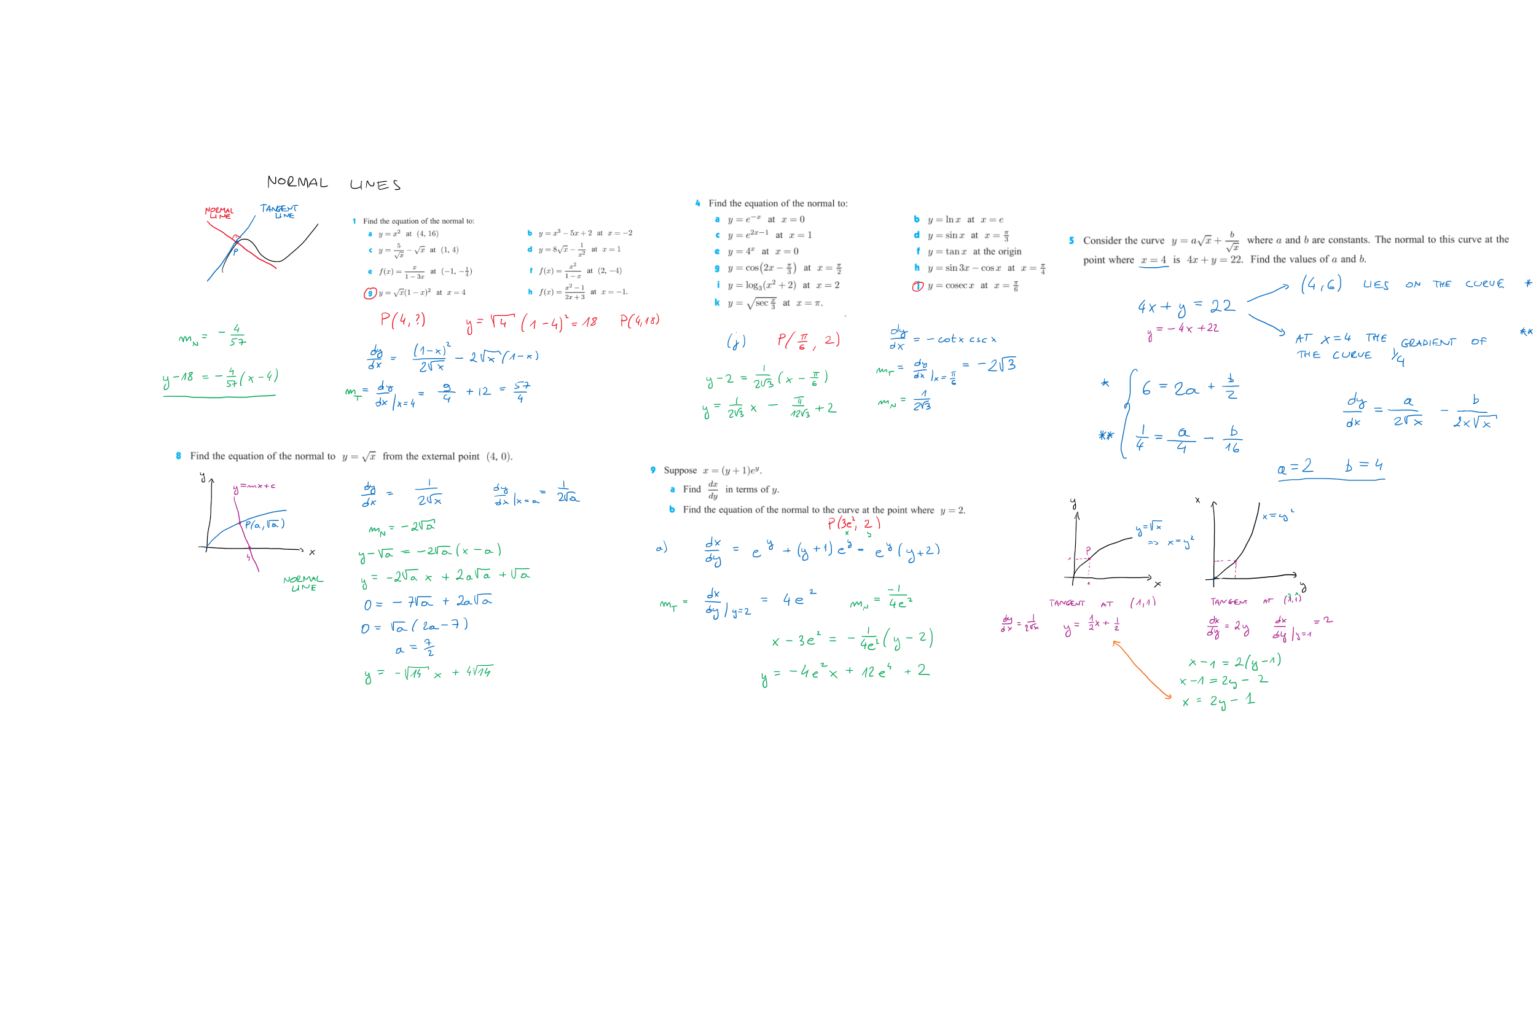 NORMAL LINES
NORMAL LINE
TANGENT LINE
P
1 Find the equation of the normal to:
a y = x² at (4, 16)
b y = x³ − 5x + 2 at x = −2
c y = 5/√x − √x at (1, 4)
d y = 8√x − 1/x² at x = 1
e f(x) = x/(1 − 3x) at (−1, −1/4)
f f(x) = x²/(1 − x) at (2, −4)
g y = √x(1 − x)² at x = 4
h f(x) = (x² − 1)/(2x + 3) at x = −1.
P(4,?) y = √4 (1−4)² = 18 P(4,18)
dy/dx = (1−x)²/(2√x) − 2√x(1−x)
m_T = dy/dx|x=4 = 9/4 + 12 = 57/4
m_N = −4/57
y−18 = −4/57(x−4)
4 Find the equation of the normal to:
a y = e^(−x) at x = 0
b y = ln x at x = e
c y = e^(2x−1) at x = 1
d y = sin x at x = π/3
e y = 4^x at x = 0
f y = tan x at the origin
g y = cos(2x − π/3) at x = π/2
h y = sin 3x − cos x at x = π/4
i y = log₃(x² + 2) at x = 2
j y = cosec x at x = π/6
k y = √(sec x/3) at x = π.
(j) P(π/6, 2)
dy/dx = −cotx cscx
m_T = dy/dx|x=π/6 = −2√3
m_N = 1/(2√3)
y−2 = 1/(2√3)(x − π/6)
y = 1/(2√3) x − π/(12√3) + 2
5 Consider the curve y = a√x + b/√x where a and b are constants. The normal to this curve at the
point where x = 4 is 4x + y = 22. Find the values of a and b.
4x + y = 22
y = −4x+22
(4,6) LIES ON THE CURVE *
AT x=4 THE GRADIENT OF **
THE CURVE 1/4
* 6 = 2a + b/2
** 1/4 = a/4 − b/16
dy/dx = a/(2√x) − b/(2x√x)
a=2 b=4
8 Find the equation of the normal to y = √x from the external point (4, 0).
y
y=mx+c
P(a,√a)
4
x
NORMAL LINE
dy/dx = 1/(2√x) dy/dx|x=a = 1/(2√a)
m_N = −2√a
y−√a = −2√a(x−a)
y = −2√a x + 2a√a + √a
0 = −7√a + 2a√a
0 = √a(2a−7)
a = 7/2
y = −√14 x + 4√14
9 Suppose x = (y + 1)e^y.
a Find dx/dy in terms of y.
b Find the equation of the normal to the curve at the point where y = 2.
P(3e², 2)
x y
a) dx/dy = e^y + (y+1)e^y = e^y(y+2)
m_T = dx/dy|y=2 = 4e² m_N = −1/(4e²)
x − 3e² = −1/(4e²)(y−2)
y = −4e²x + 12e⁴ + 2
y
y=√x
=> x=y²
P
x
TANGENT AT (1,1)
dy/dx = 1/(2√x) y = 1/2 x + 1/2
x
x=y²
y
TANGENT AT (1,1)
dx/dy = 2y dx/dy|y=1 = 2
x−1 = 2(y−1)
x−1 = 2y − 2
x = 2y − 1